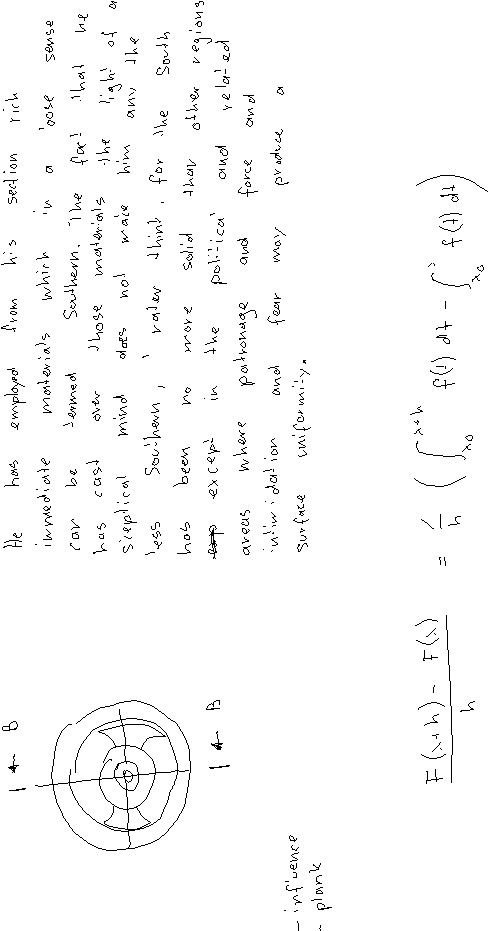 He has employed from his section rich
immediate materials which in a loose sense
can be termed Southern. The fact that he
has cast over those materials the light of a
skeptical mind does not make him any the
less Southern, I rather think, for the South
has been no more solid than other regions
except in the political and related
areas where patronage and force and
intimidation and fear may produce a
surface uniformity.
B
B
- influence
- plank
F(x+h) - F(x) / h = 1/h ( ∫_{x_0}^{x+h} f(t) dt - ∫_{x_0}^{x} f(t) dt )